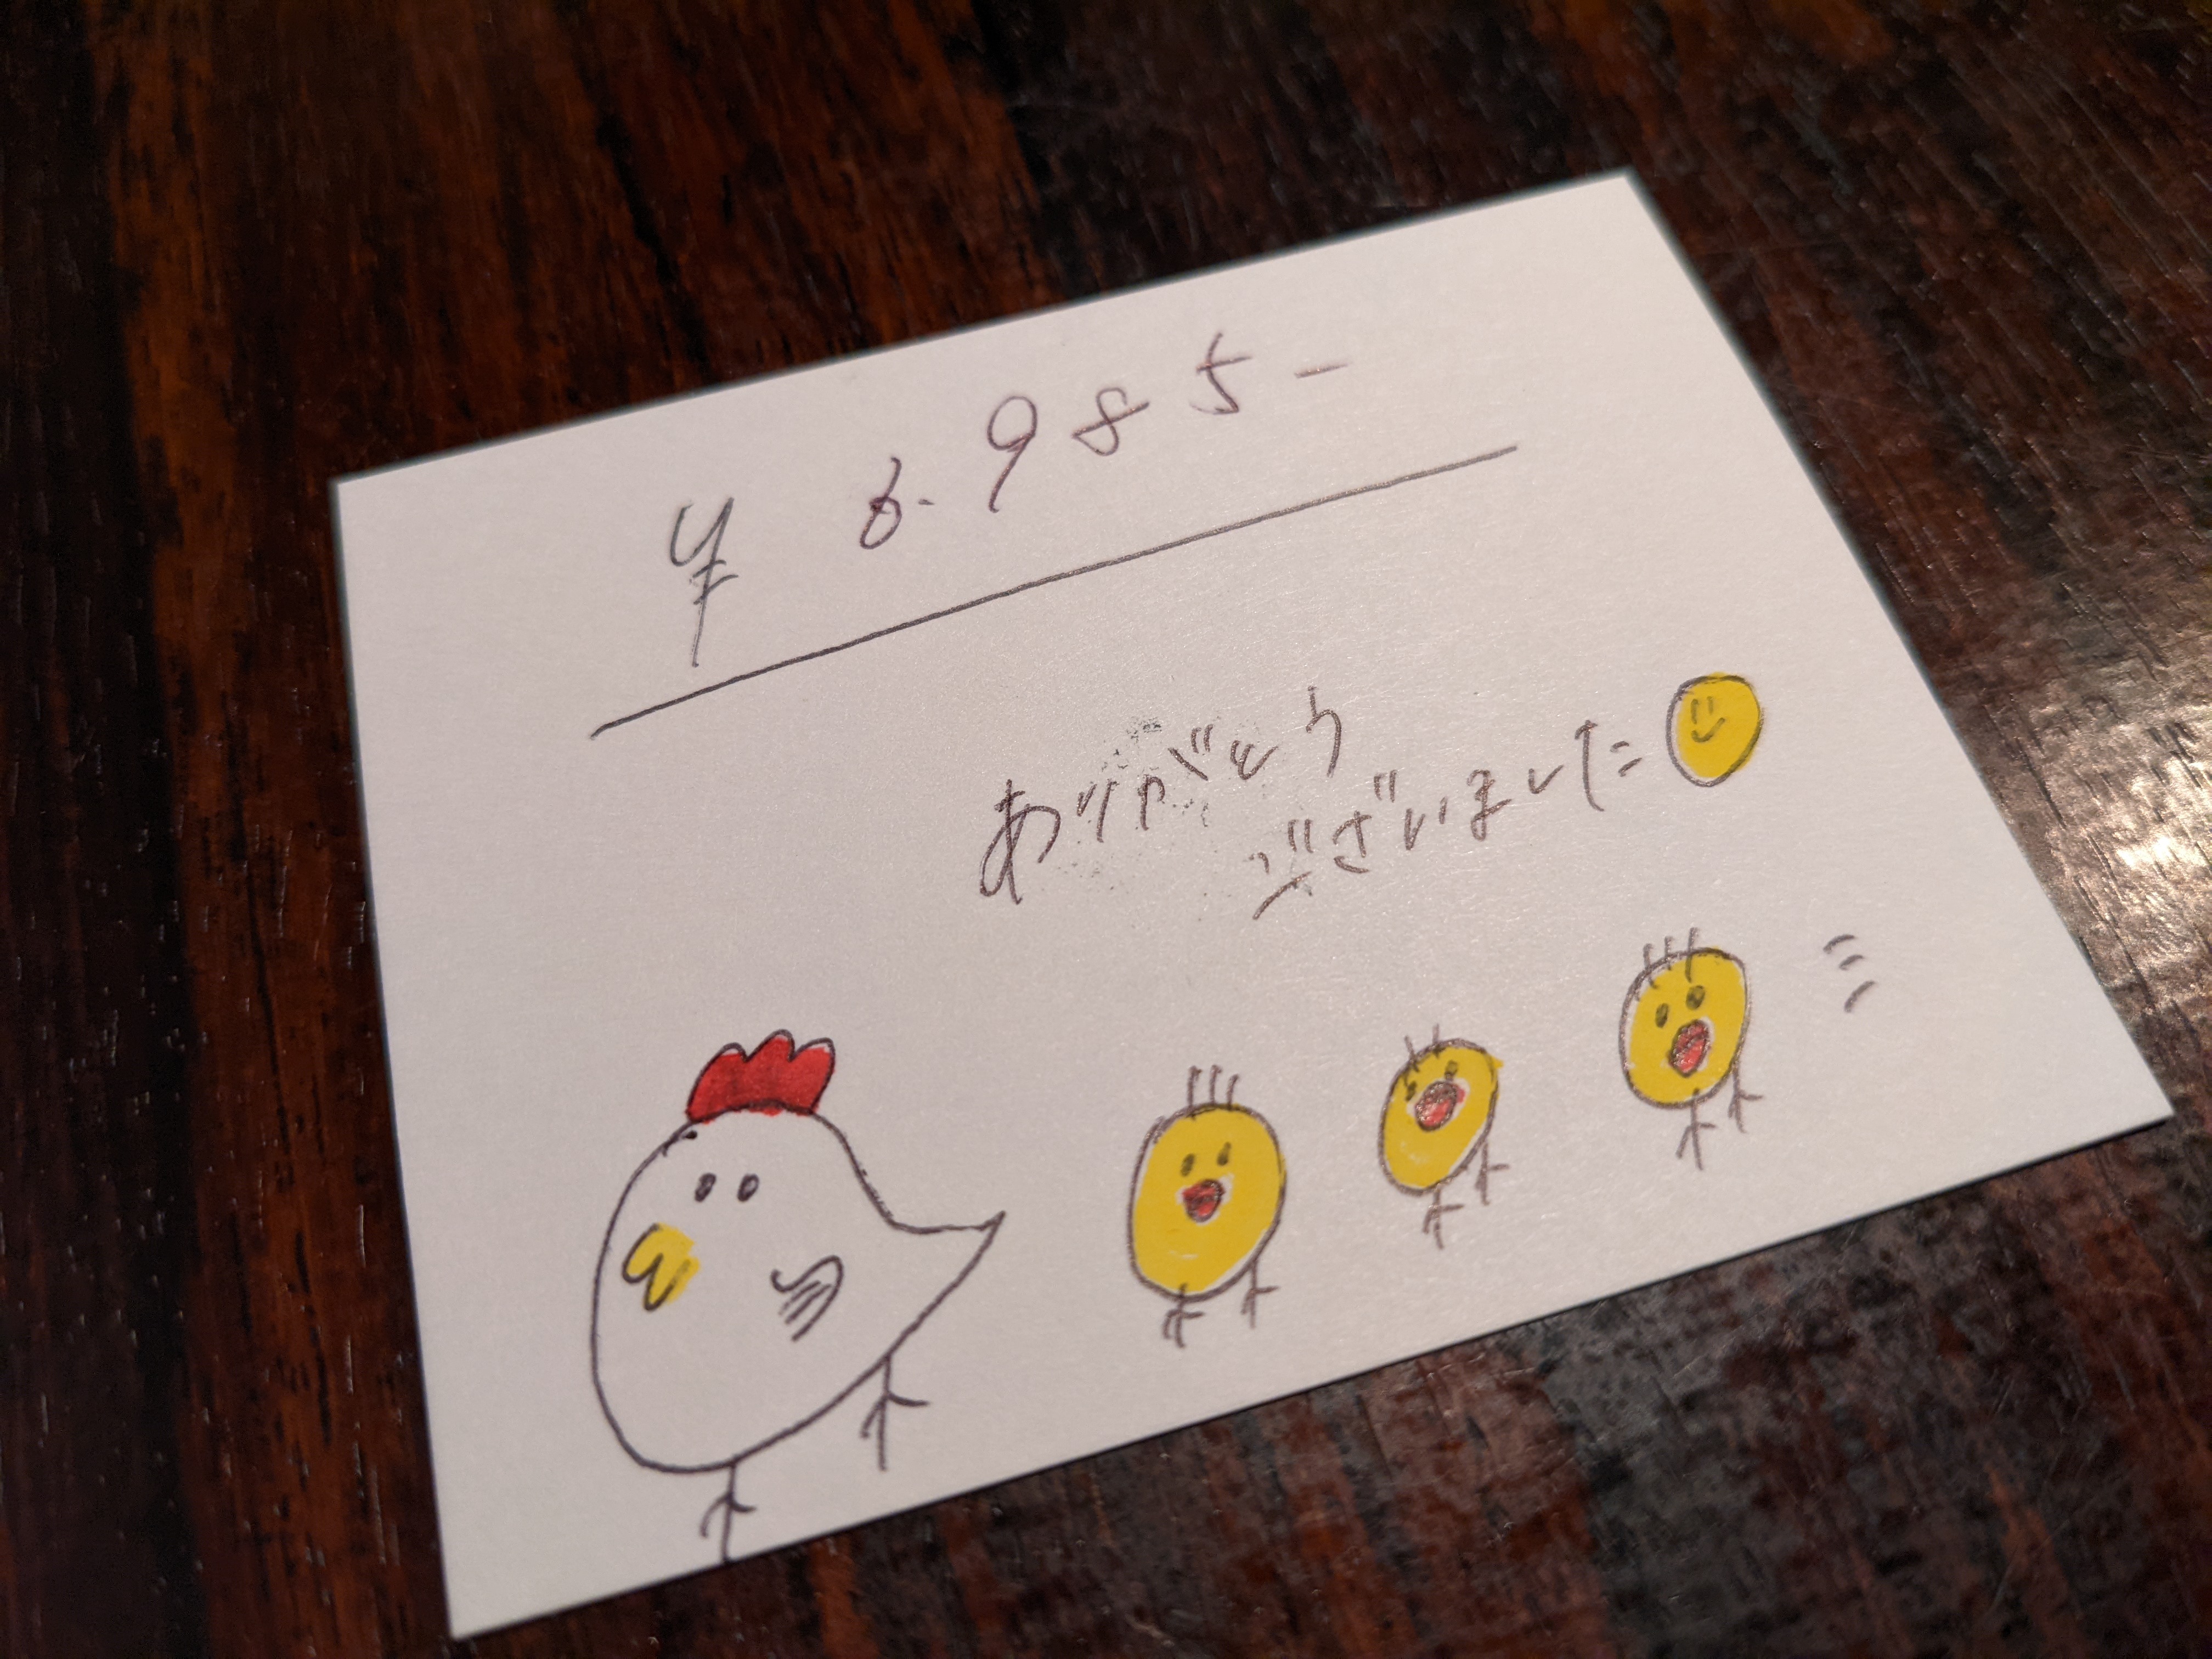 ¥ 6.985-
ありがとう
ございました